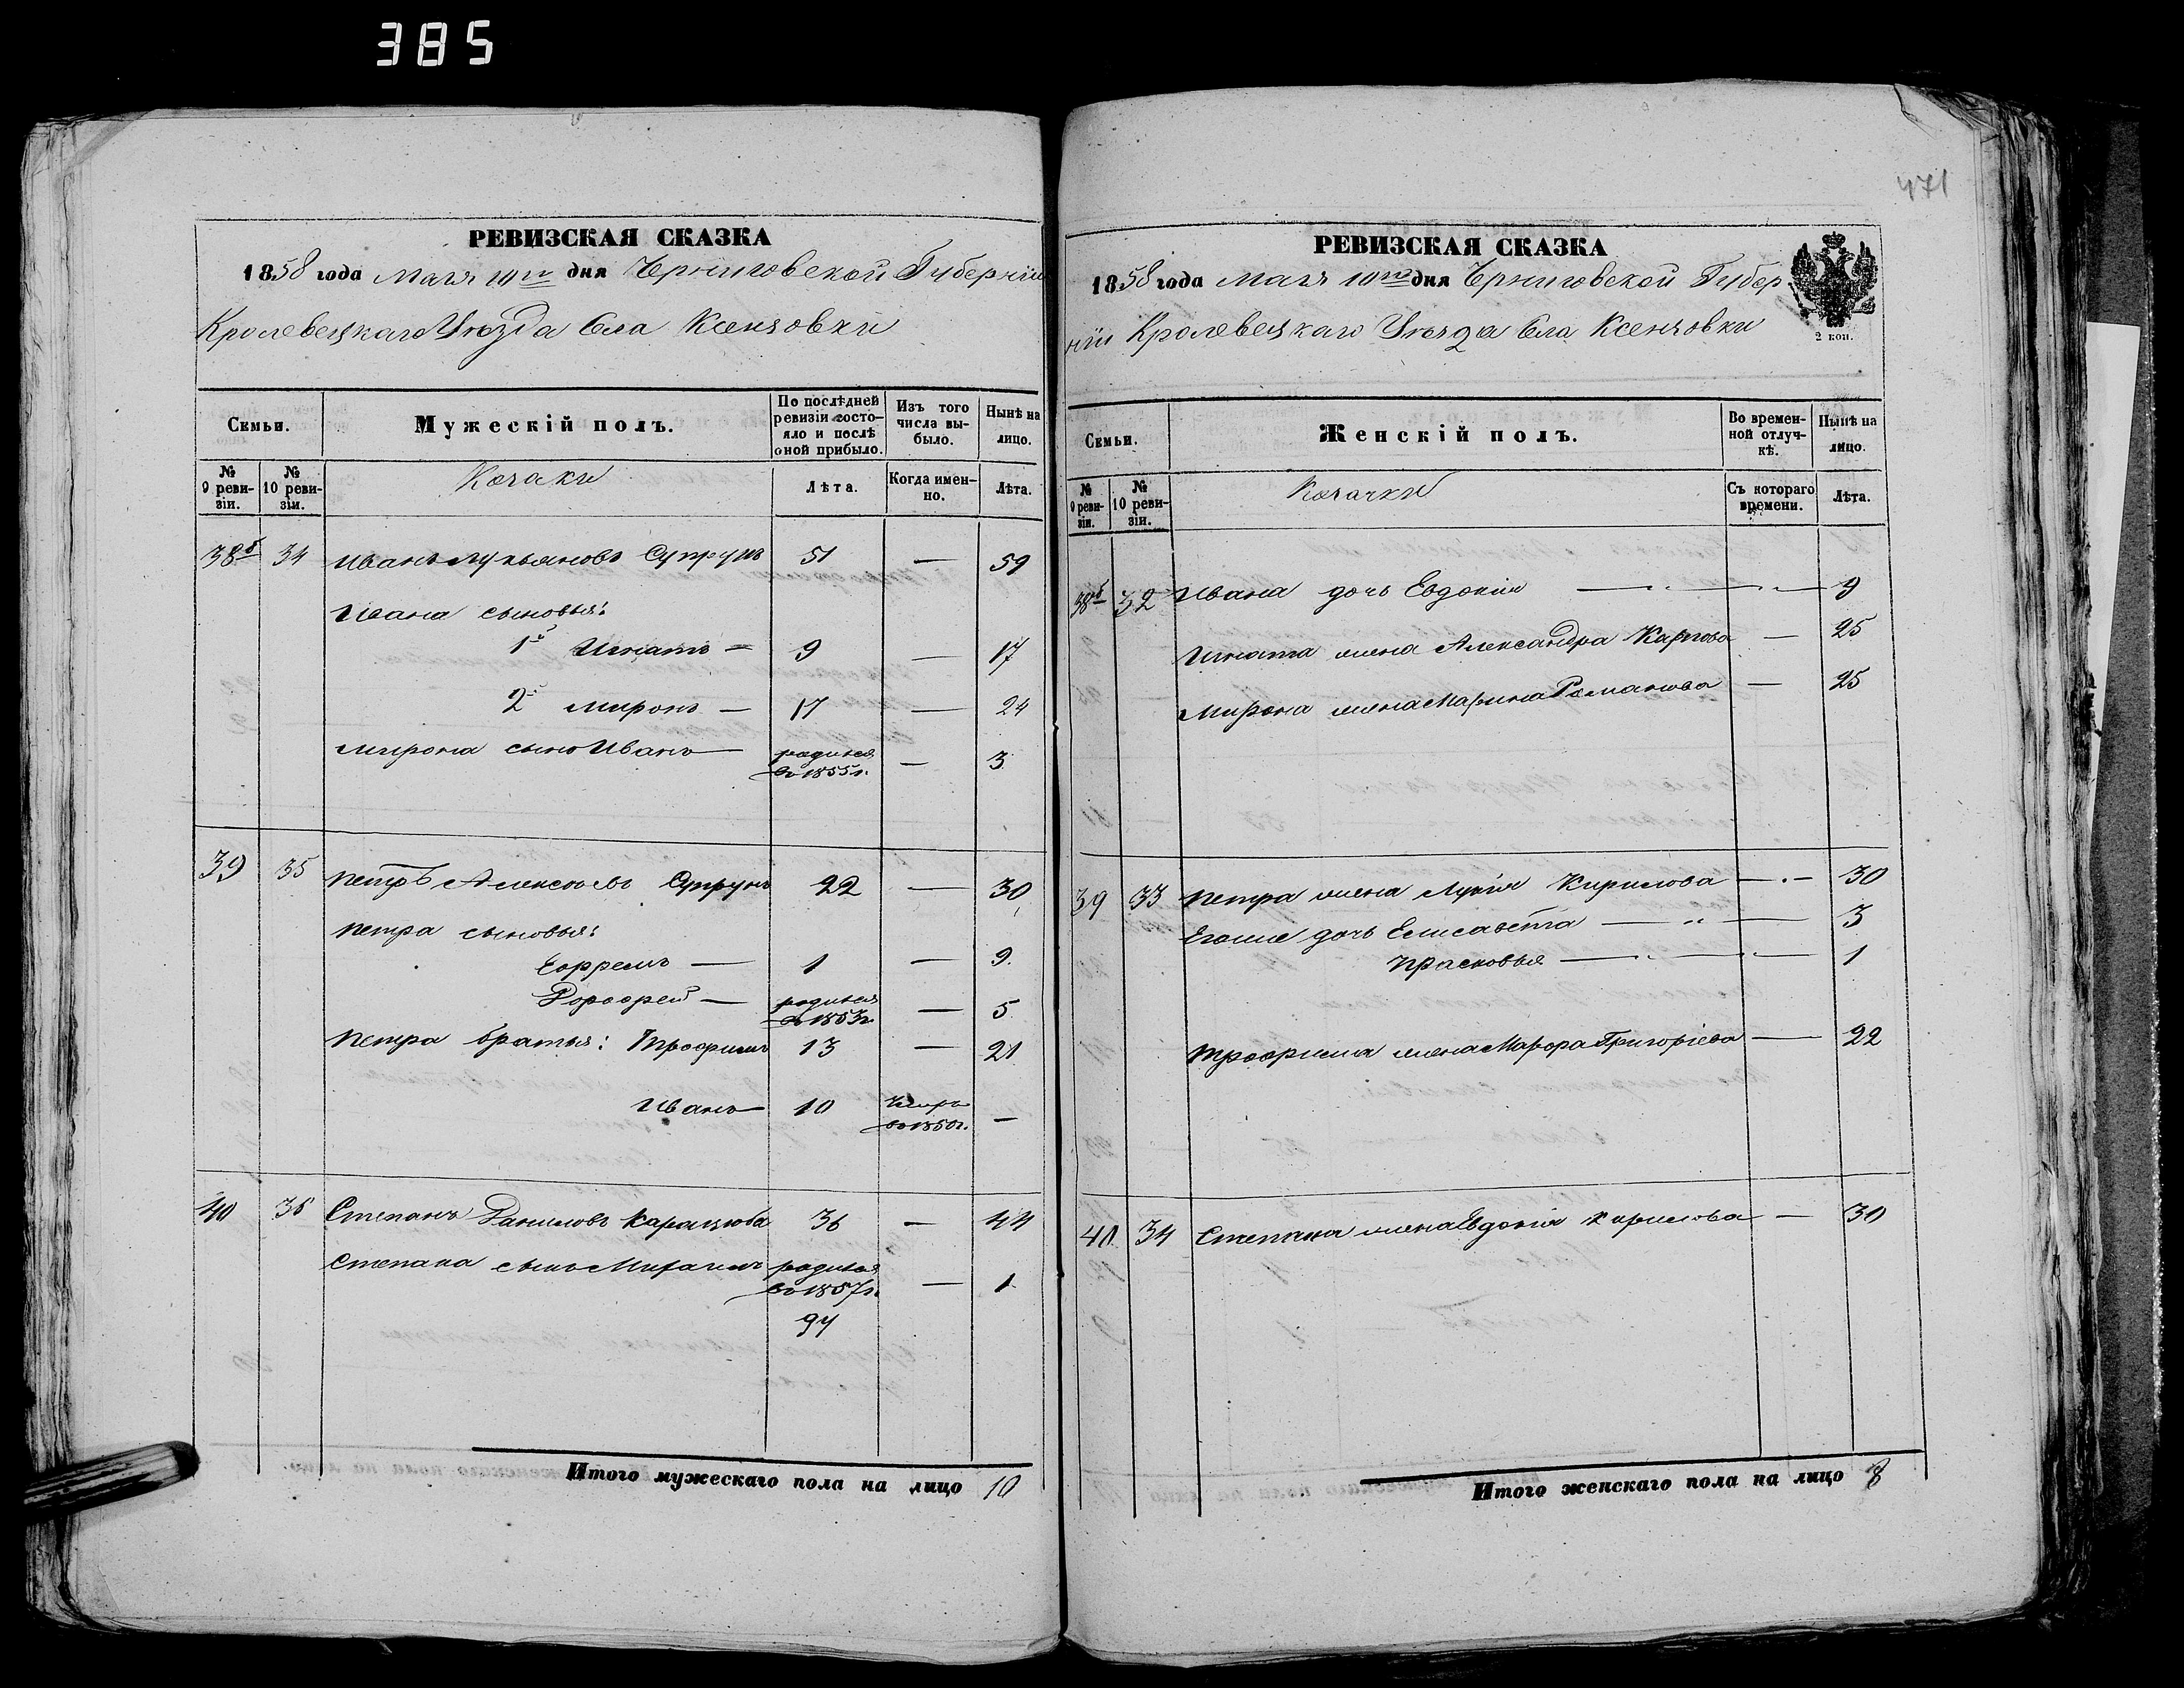 385
471
РЕВИЗСКАЯ СКАЗКА
1858 года мая 10го дня Черниговской Губерніи
Кролевецкаго Уезда Села Ксензовки
Семьи.
Мужескій полъ.
По послѣдней ревизіи состояло и послѣ оной прибыло.
Изъ того числа выбыло.
Нынѣ на лицо.
№ 9 ревизіи.
№ 10 ревизіи.
Козаки
Лѣта.
Когда именно.
Лѣта.
38б 34 Иванъ Лукьяновъ Супрунъ 51 — 59
Ивана сыновья:
1й Игнатъ — 9 — 17
2й Миронъ — 17 — 24
Мирона сынъ Иванъ — родился въ 1855г. — 3
39 35 Петръ Алексѣевъ Супрунъ 22 — 30
Петра сыновья:
Ефремъ — 1 — 9
Дорофей — родился въ 1853г. — 5
Петра братья: Трофимъ 13 — 21
Иванъ — 10 умеръ въ 1850г. —
40 36 Степанъ Даниловъ 36 — 44
Степана сынъ Михаилъ родился въ 1857г. — 1
94
Итого мужескаго пола на лицо 10
РЕВИЗСКАЯ СКАЗКА
1858 года мая 10го дня Черниговской Губер
ніи Кролевецкаго Уезда Села Ксензовки
2 коп.
Семьи.
Женскій полъ.
Во временной отлучкѣ.
Нынѣ на лицо.
№ 9 ревизіи.
№ 10 ревизіи.
Козачки
Съ котораго времени.
Лѣта.
38б 32 Ивана дочь Евдокія — " — " — 9
Игната жена Александра Карпова — 25
Мирона жена Марина Романова — 25
39 33 Петра жена Лукія Кирилова — . — 30
Егоже дочь Елисавета — " — 3
Прасковья — " — " — 1
Трофима жена Марфа Григоріева — 22
40 34 Степана жена Евдокія Кирилова — 30
Итого женскаго пола на лицо 8